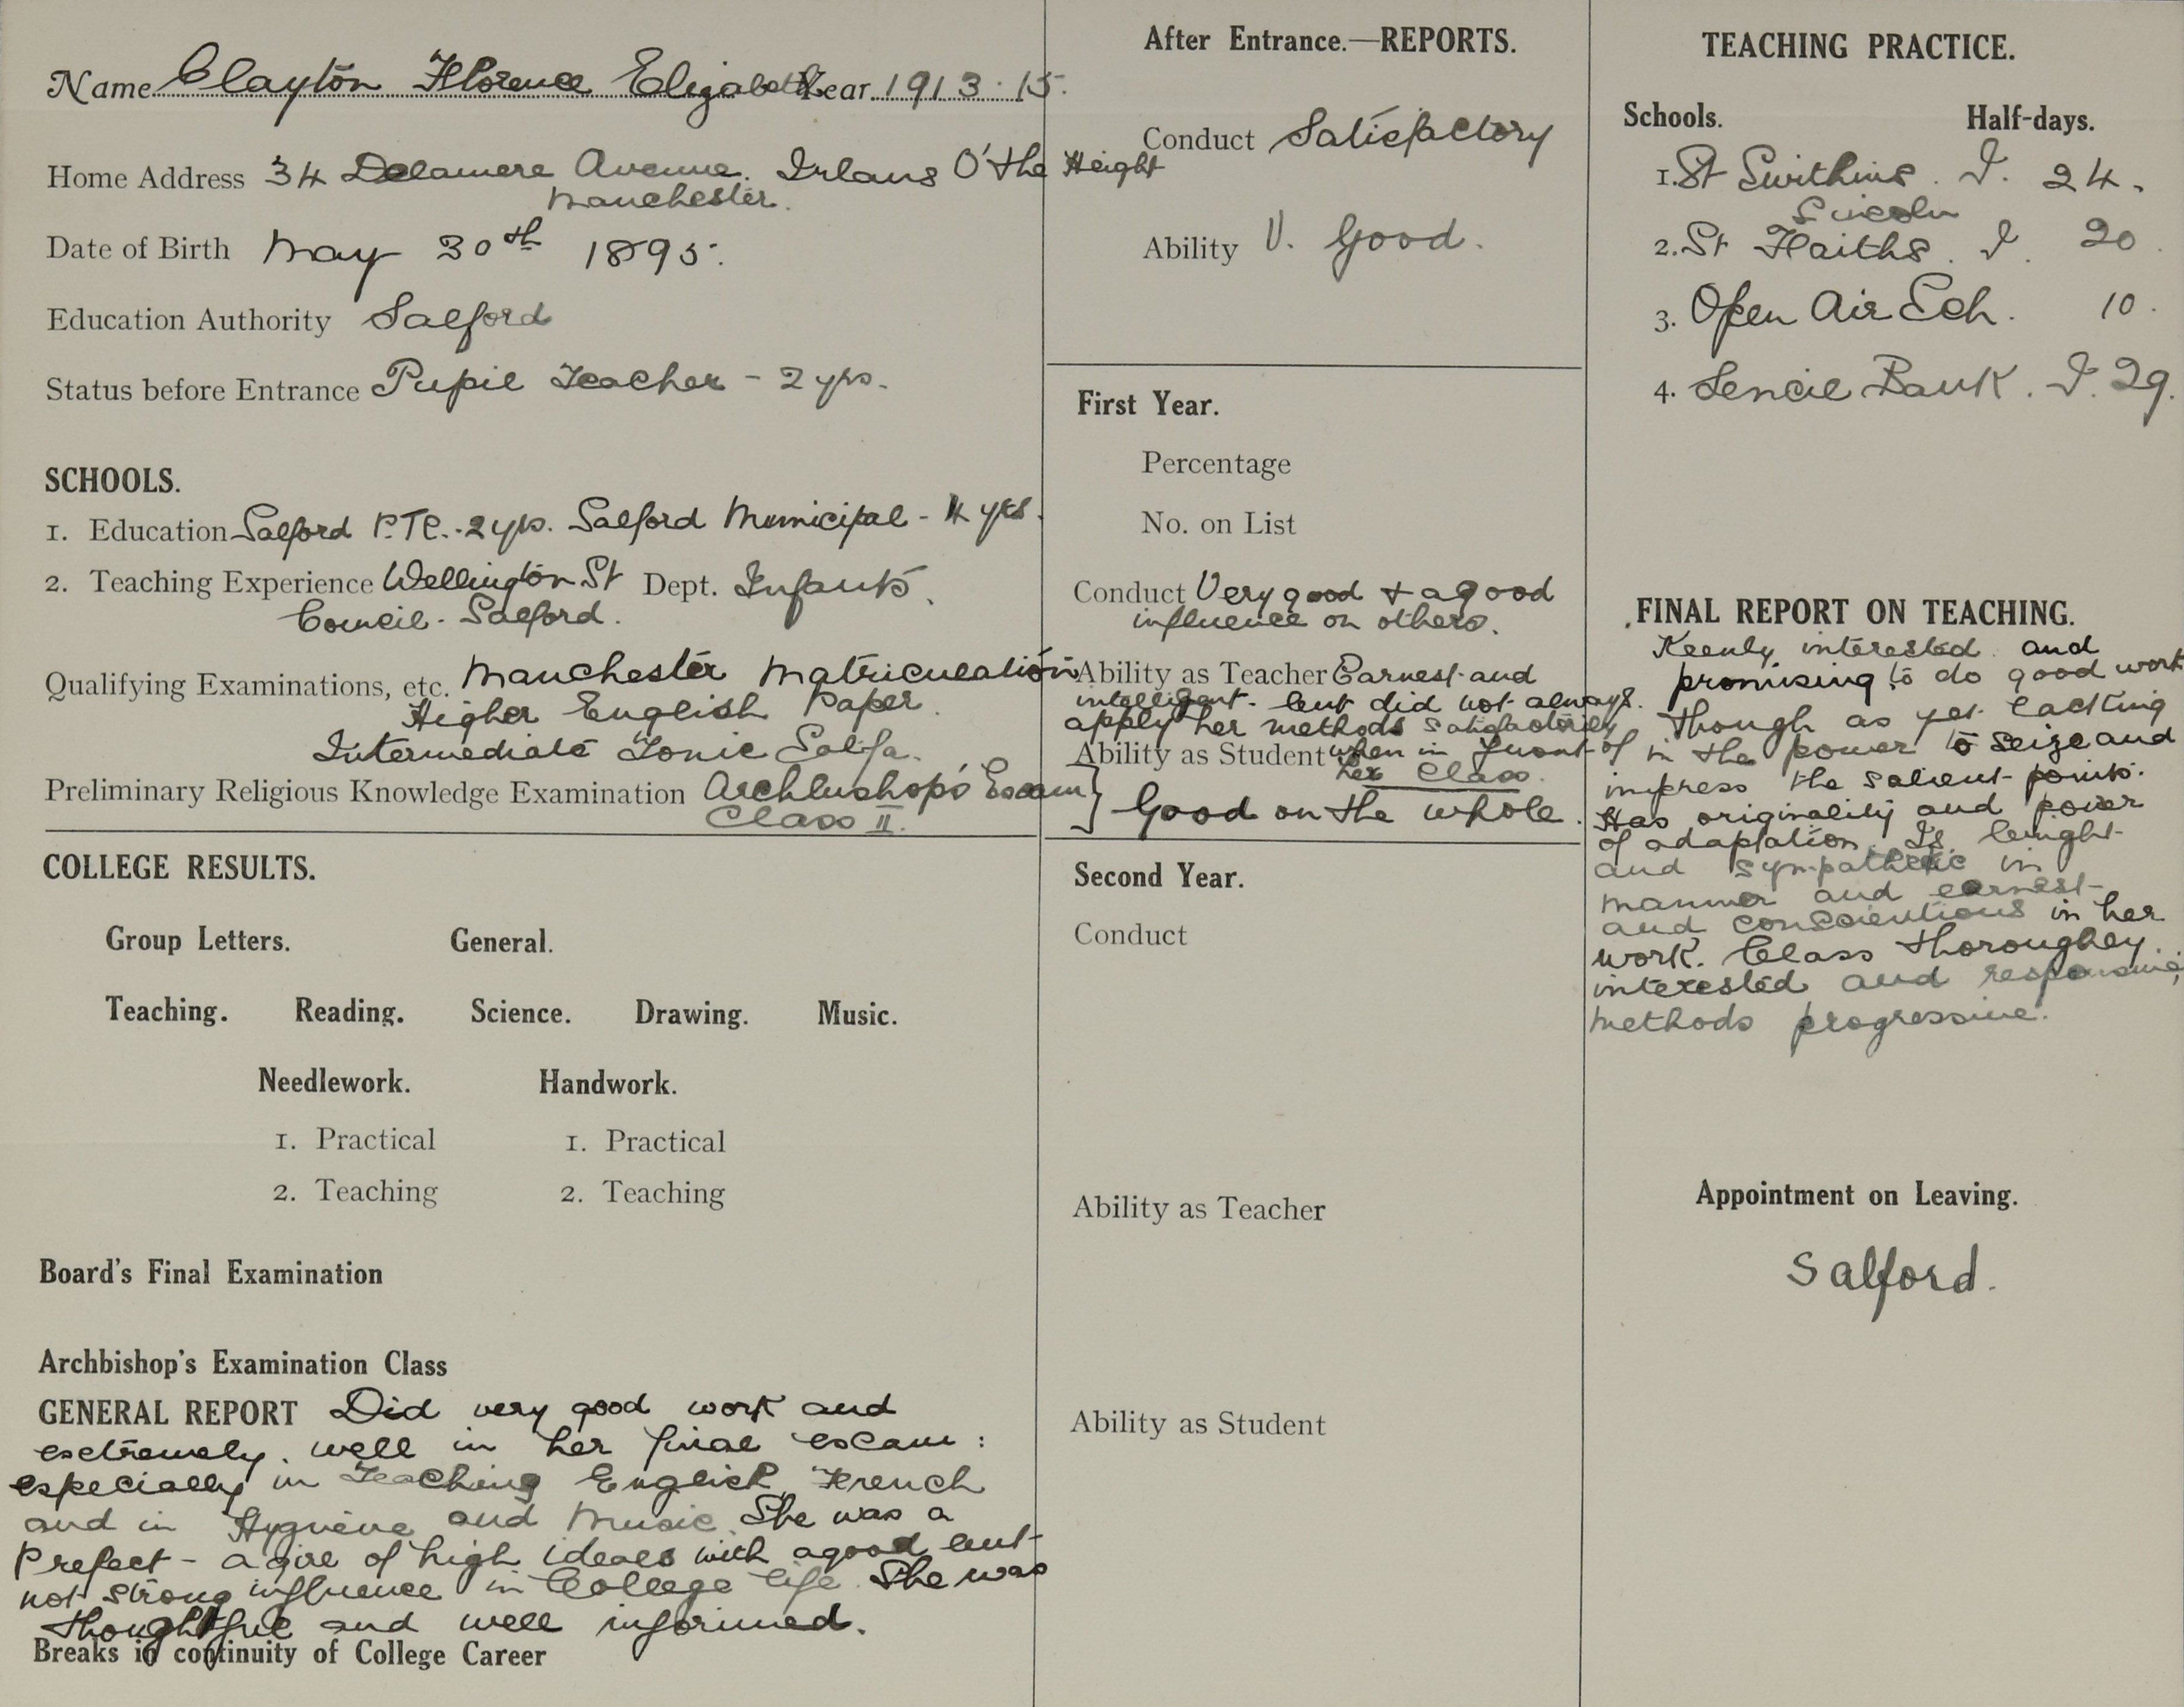 Name Clayton Florence Elizabeth Year 1913.15.
Home Address 34 Delamere Avenue. Irlans O'the Height
Manchester.
Date of Birth May 30th 1895.
Education Authority Salford
Status before Entrance Pupil Teacher - 2 yrs.
SCHOOLS.
1. Education Salford P.T.C. - 2 yrs. Salford Municipal - 4 yrs.
2. Teaching Experience Wellington St Dept. Infants.
Council - Salford.
Qualifying Examinations, etc. Manchester Matriculation
Higher English Paper.
Intermediate Tonic Solfa.
Preliminary Religious Knowledge Examination Archbishop's Exam
Class II.
COLLEGE RESULTS.
Group Letters. General.
Teaching. Reading. Science. Drawing. Music.
Needlework. Handwork.
1. Practical 1. Practical
2. Teaching 2. Teaching
Board's Final Examination
Archbishop's Examination Class
GENERAL REPORT Did very good work and
extremely well in her final exam :
especially in Teaching English, French
and in Hygiene and Music. She was a
Prefect - a girl of high ideals with a good but
not strong influence in College life. She was
thoughtful and well informed.
Breaks in continuity of College Career
After Entrance.—REPORTS.
Conduct Satisfactory
Ability V. Good.
First Year.
Percentage
No. on List
Conduct Very good + a good
influence on others.
Ability as Teacher Earnest and
intelligent - but did not always
apply her methods satisfactorily
Ability as Student when in front of
her class.
} Good on the whole.
Second Year.
Conduct
Ability as Teacher
Ability as Student
TEACHING PRACTICE.
Schools. Half-days.
1. St Swithins. I. 24.
Lincoln
2. St Faiths. I. 20.
3. Open Air Sch. 10.
4. Sencil Bank. I. 29.
FINAL REPORT ON TEACHING.
Keenly interested and
promising to do good work
though as yet lacking
in the power to seize and
impress the salient points.
Has originality and power
of adaptation. Is bright
and sympathetic in
manner and earnest
and conscientious in her
work. Class thoroughly
interested and responsive;
methods progressive.
Appointment on Leaving.
Salford.